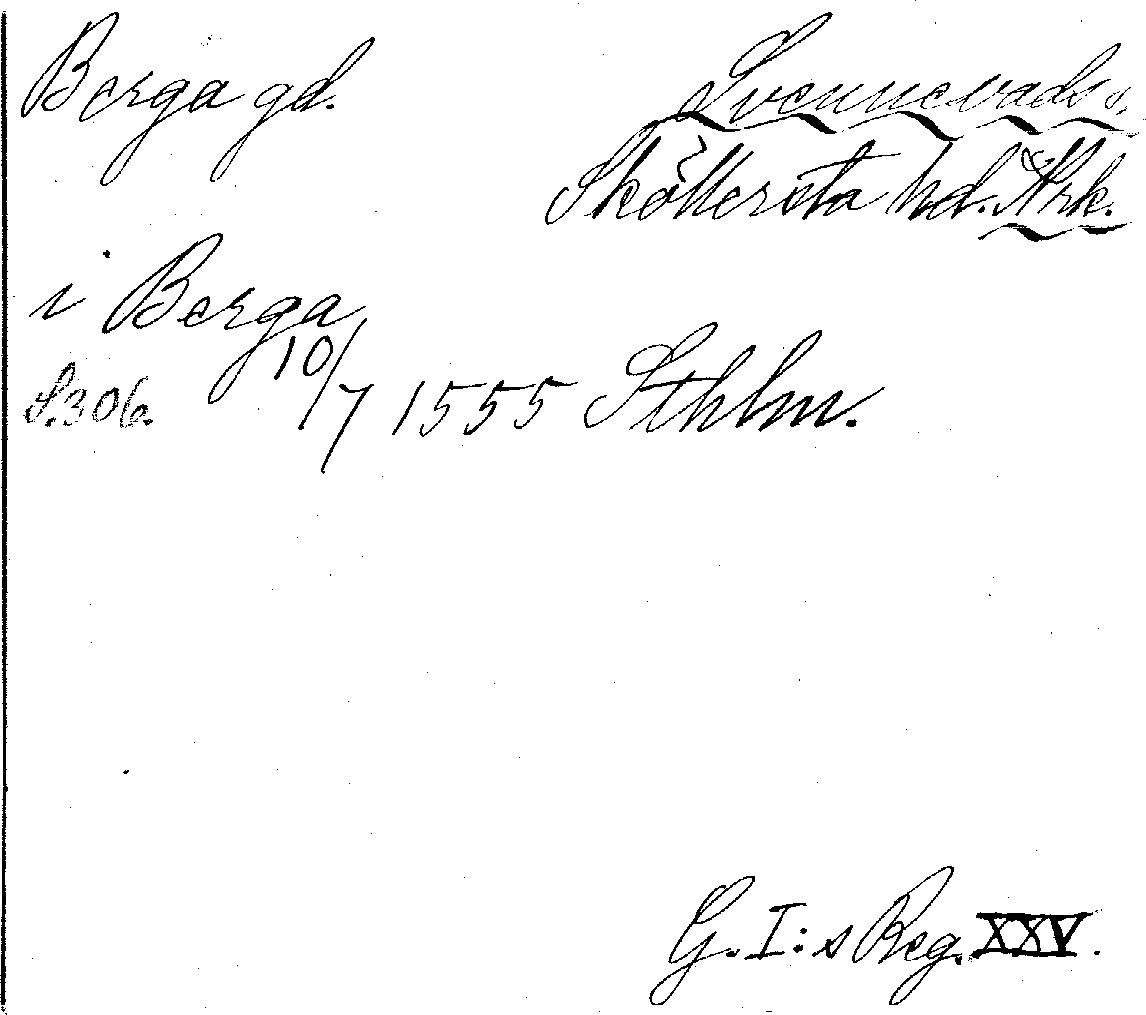 Berga gd.
Svennevads s.
Sköllersta hd. Nrk.
i Berga
S. 306. 10/7 1555 Sthlm.
G. I:s Reg. XXV.